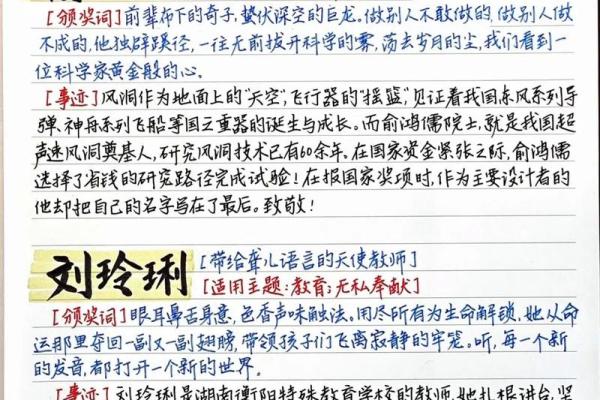 [颁奖词]前辈布下的奇子,蛰伏深空的巨龙。做别人不敢做的,做别人做
不成的,他独辟蹊径,一往无前拨开科学的雾,荡去岁月的尘,我们看到一
位科学家黄金般的心。
[事迹]风洞作为地面上的“天空”,飞行器的“摇篮”,见证着我国东风系列导
弹、神舟系列飞船等国之重器的诞生与成长。而俞鸿儒院士,就是我国超
声速风洞奠基人,研究风洞技术已有60余年。在国家资金紧张之际,俞鸿儒
选择了省钱的研究路径完成试验!在报国家奖项时,作为主要设计者的
他却把自己的名字写在了最后。致敬!
刘玲琍[带给聋儿语言的天使教师]
[适用主题:教育;无私奉献]
[颁奖词]眼耳鼻舌身意,色香声味触法。用尽所有为生命解锁,她从命
运那里夺回一副又一副翅膀,带领孩子们飞离寂静的牢笼。听,每一个新
的发音,都打开一个新的世界。
[事迹]刘玲琍是湖南衡阳特殊教育学校的教师,她扎根讲台,坚